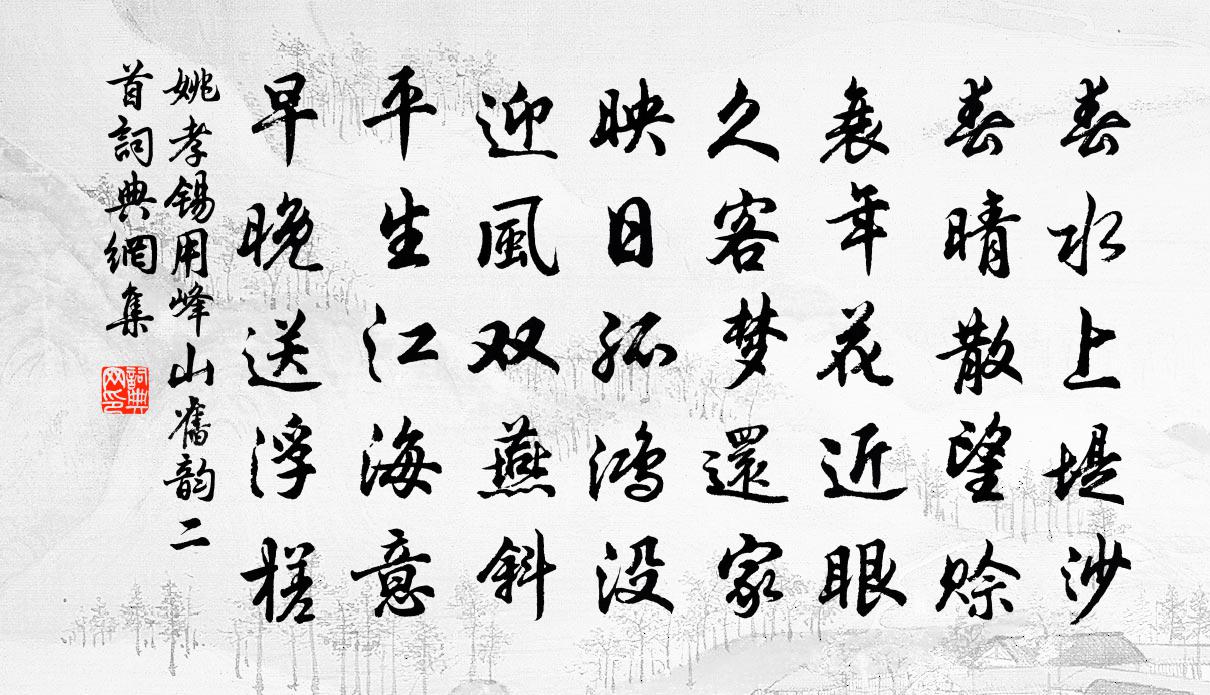 春水上堤沙
春晴散望賒
衰年花近眼
久客梦還家
映日孤鸿没
迎風双燕斜
平生江海意
早晚送浮槎
姚孝锡用峰山舊韵二
首詞典網集
詞典
网印